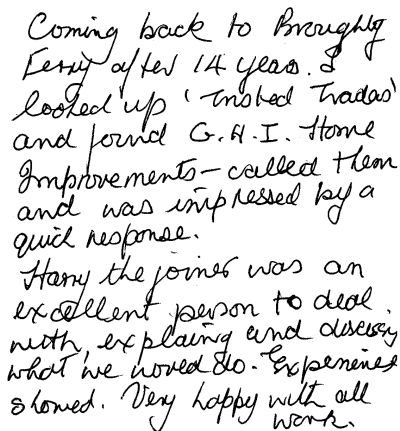 Coming back to Broughty
Ferry after 14 years. I
looked up 'Trusted Trades'
and found G.H.I. Home
Improvements - called them
and was impressed by a
quick response.
Harry the joiner was an
excellent person to deal
with, explaing and discussing
what we would do. Experience
showed. Very happy with all
work.